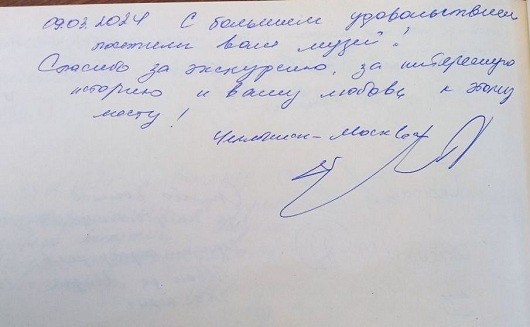 09.03.2024 С большим удовольствием
посетили ваш музей!
Спасибо за экскурсию, за интересную
историю и вашу любовь к этому
месту!
Челябинск-Москва